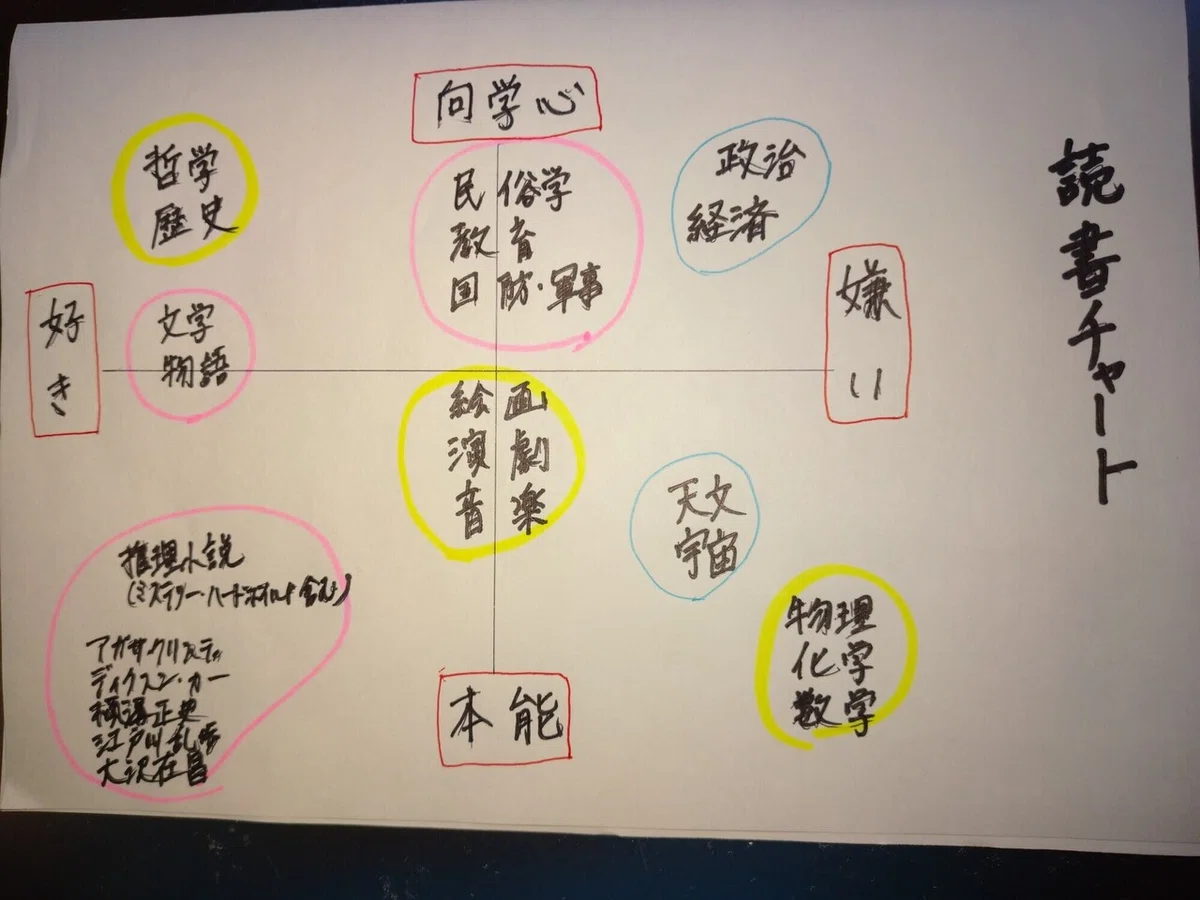 読書チャート
向学心
哲学
歴史
民俗学
教育
国防・軍事
政治
経済
好き
嫌い
文学
物語
絵画
演劇
音楽
天文
宇宙
推理小説
(ミステリー・ハードボイルド含む)
アガサ・クリスティ
ディクスン・カー
横溝正史
江戸川乱歩
大沢在昌
物理
化学
数学
本能